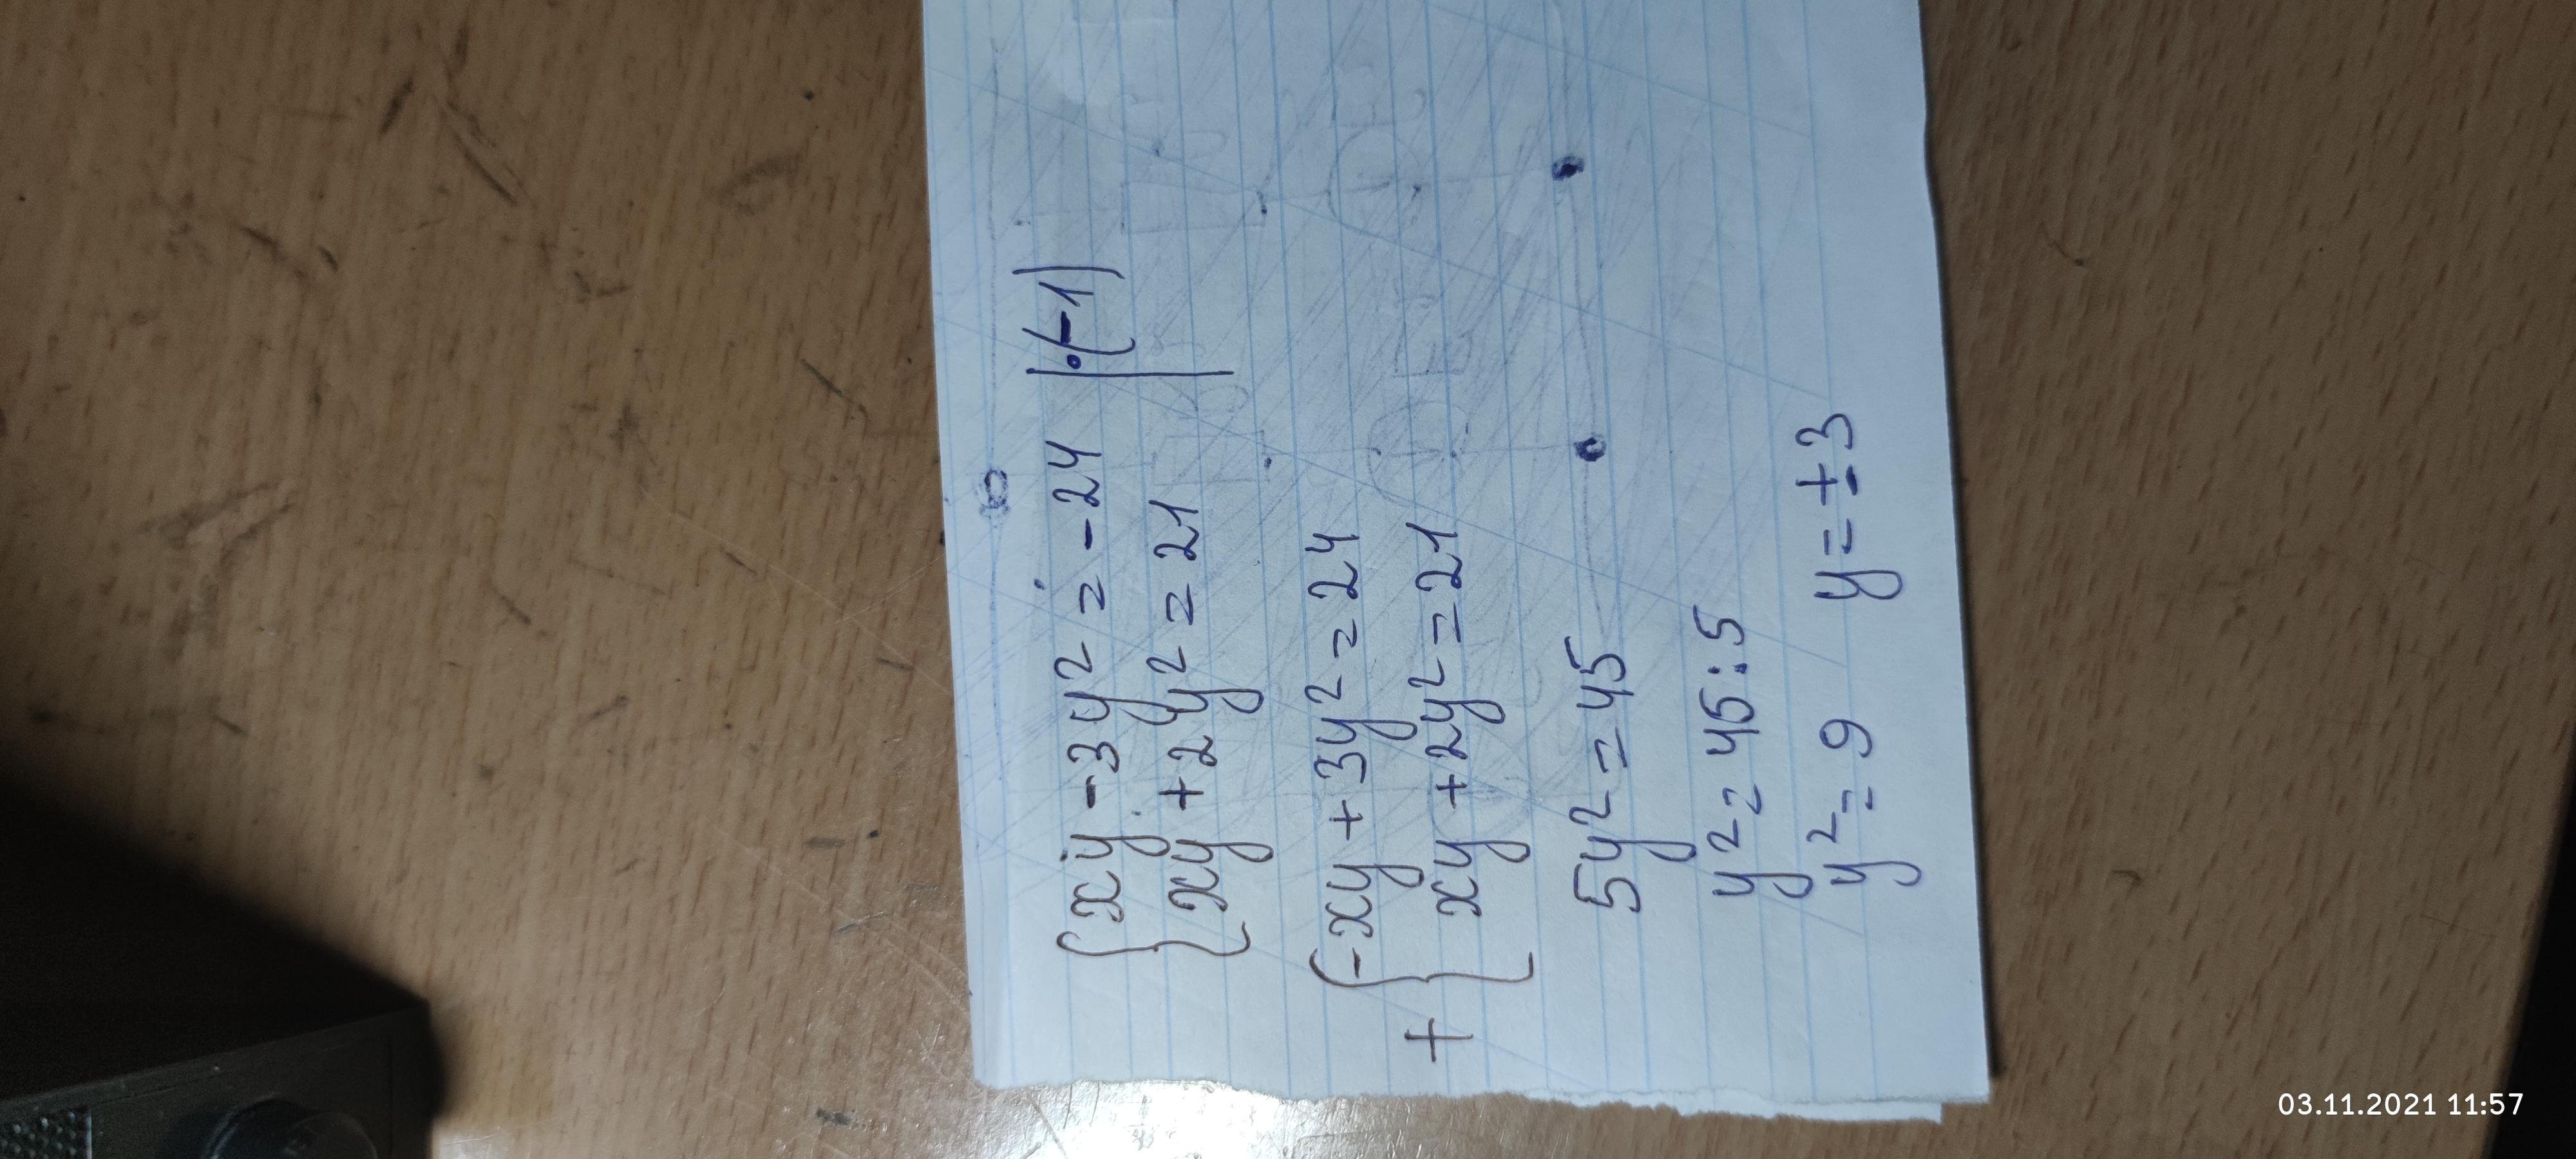 xy - 3y² = -24 |·(-1)
xy + 2y² = 21
-xy + 3y² = 24
+
xy + 2y² = 21
5y² = 45
y² = 45:5
y² = 9 y = ±3
03.11.2021 11:57